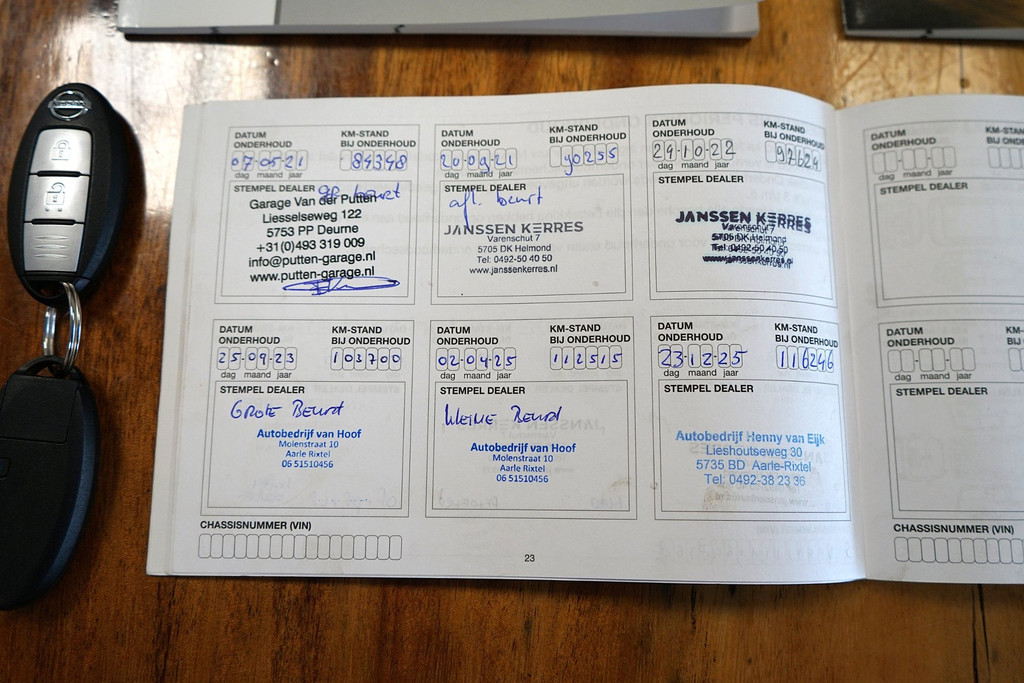 NISSAN
DATUM ONDERHOUD
KM-STAND BIJ ONDERHOUD
07-05-21
84348
dag maand jaar
STEMPEL DEALER
gr beurt
Garage Van der Putten
Liesselseweg 122
5753 PP Deurne
+31(0)493 319 009
info@putten-garage.nl
www.putten-garage.nl
DATUM ONDERHOUD
KM-STAND BIJ ONDERHOUD
20-09-21
90255
dag maand jaar
STEMPEL DEALER
afl. beurt
JANSSEN KERRES
Varenschut 7
5705 DK Helmond
Tel: 0492-50 40 50
www.janssenkerres.nl
DATUM ONDERHOUD
KM-STAND BIJ ONDERHOUD
29-10-22
97624
dag maand jaar
STEMPEL DEALER
JANSSEN KERRES
Varenschut 7
5705 DK Helmond
Tel: 0492-50 40 50
www.janssenkerres.nl
DATUM ONDERHOUD
KM-STAND BIJ ONDERHOUD
25-09-23
103700
dag maand jaar
STEMPEL DEALER
GROTE BEURT
Autobedrijf van Hoof
Molenstraat 10
Aarle Rixtel
06 51510456
DATUM ONDERHOUD
KM-STAND BIJ ONDERHOUD
02-04-25
112515
dag maand jaar
STEMPEL DEALER
KLEINE BEURT
Autobedrijf van Hoof
Molenstraat 10
Aarle Rixtel
06 51510456
DATUM ONDERHOUD
KM-STAND BIJ ONDERHOUD
23-12-25
116246
dag maand jaar
STEMPEL DEALER
Autobedrijf Henny van Eijk
Lieshoutseweg 30
5735 BD Aarle-Rixtel
Tel: 0492-38 23 36
CHASSISNUMMER (VIN)
23
DATUM ONDERHOUD
KM-S
BIJ O
dag maand jaar
STEMPEL DEALER
DATUM ONDERHOUD
KM-S
BIJ O
dag maand jaar
STEMPEL DEALER
CHASSISNUMMER (VIN)